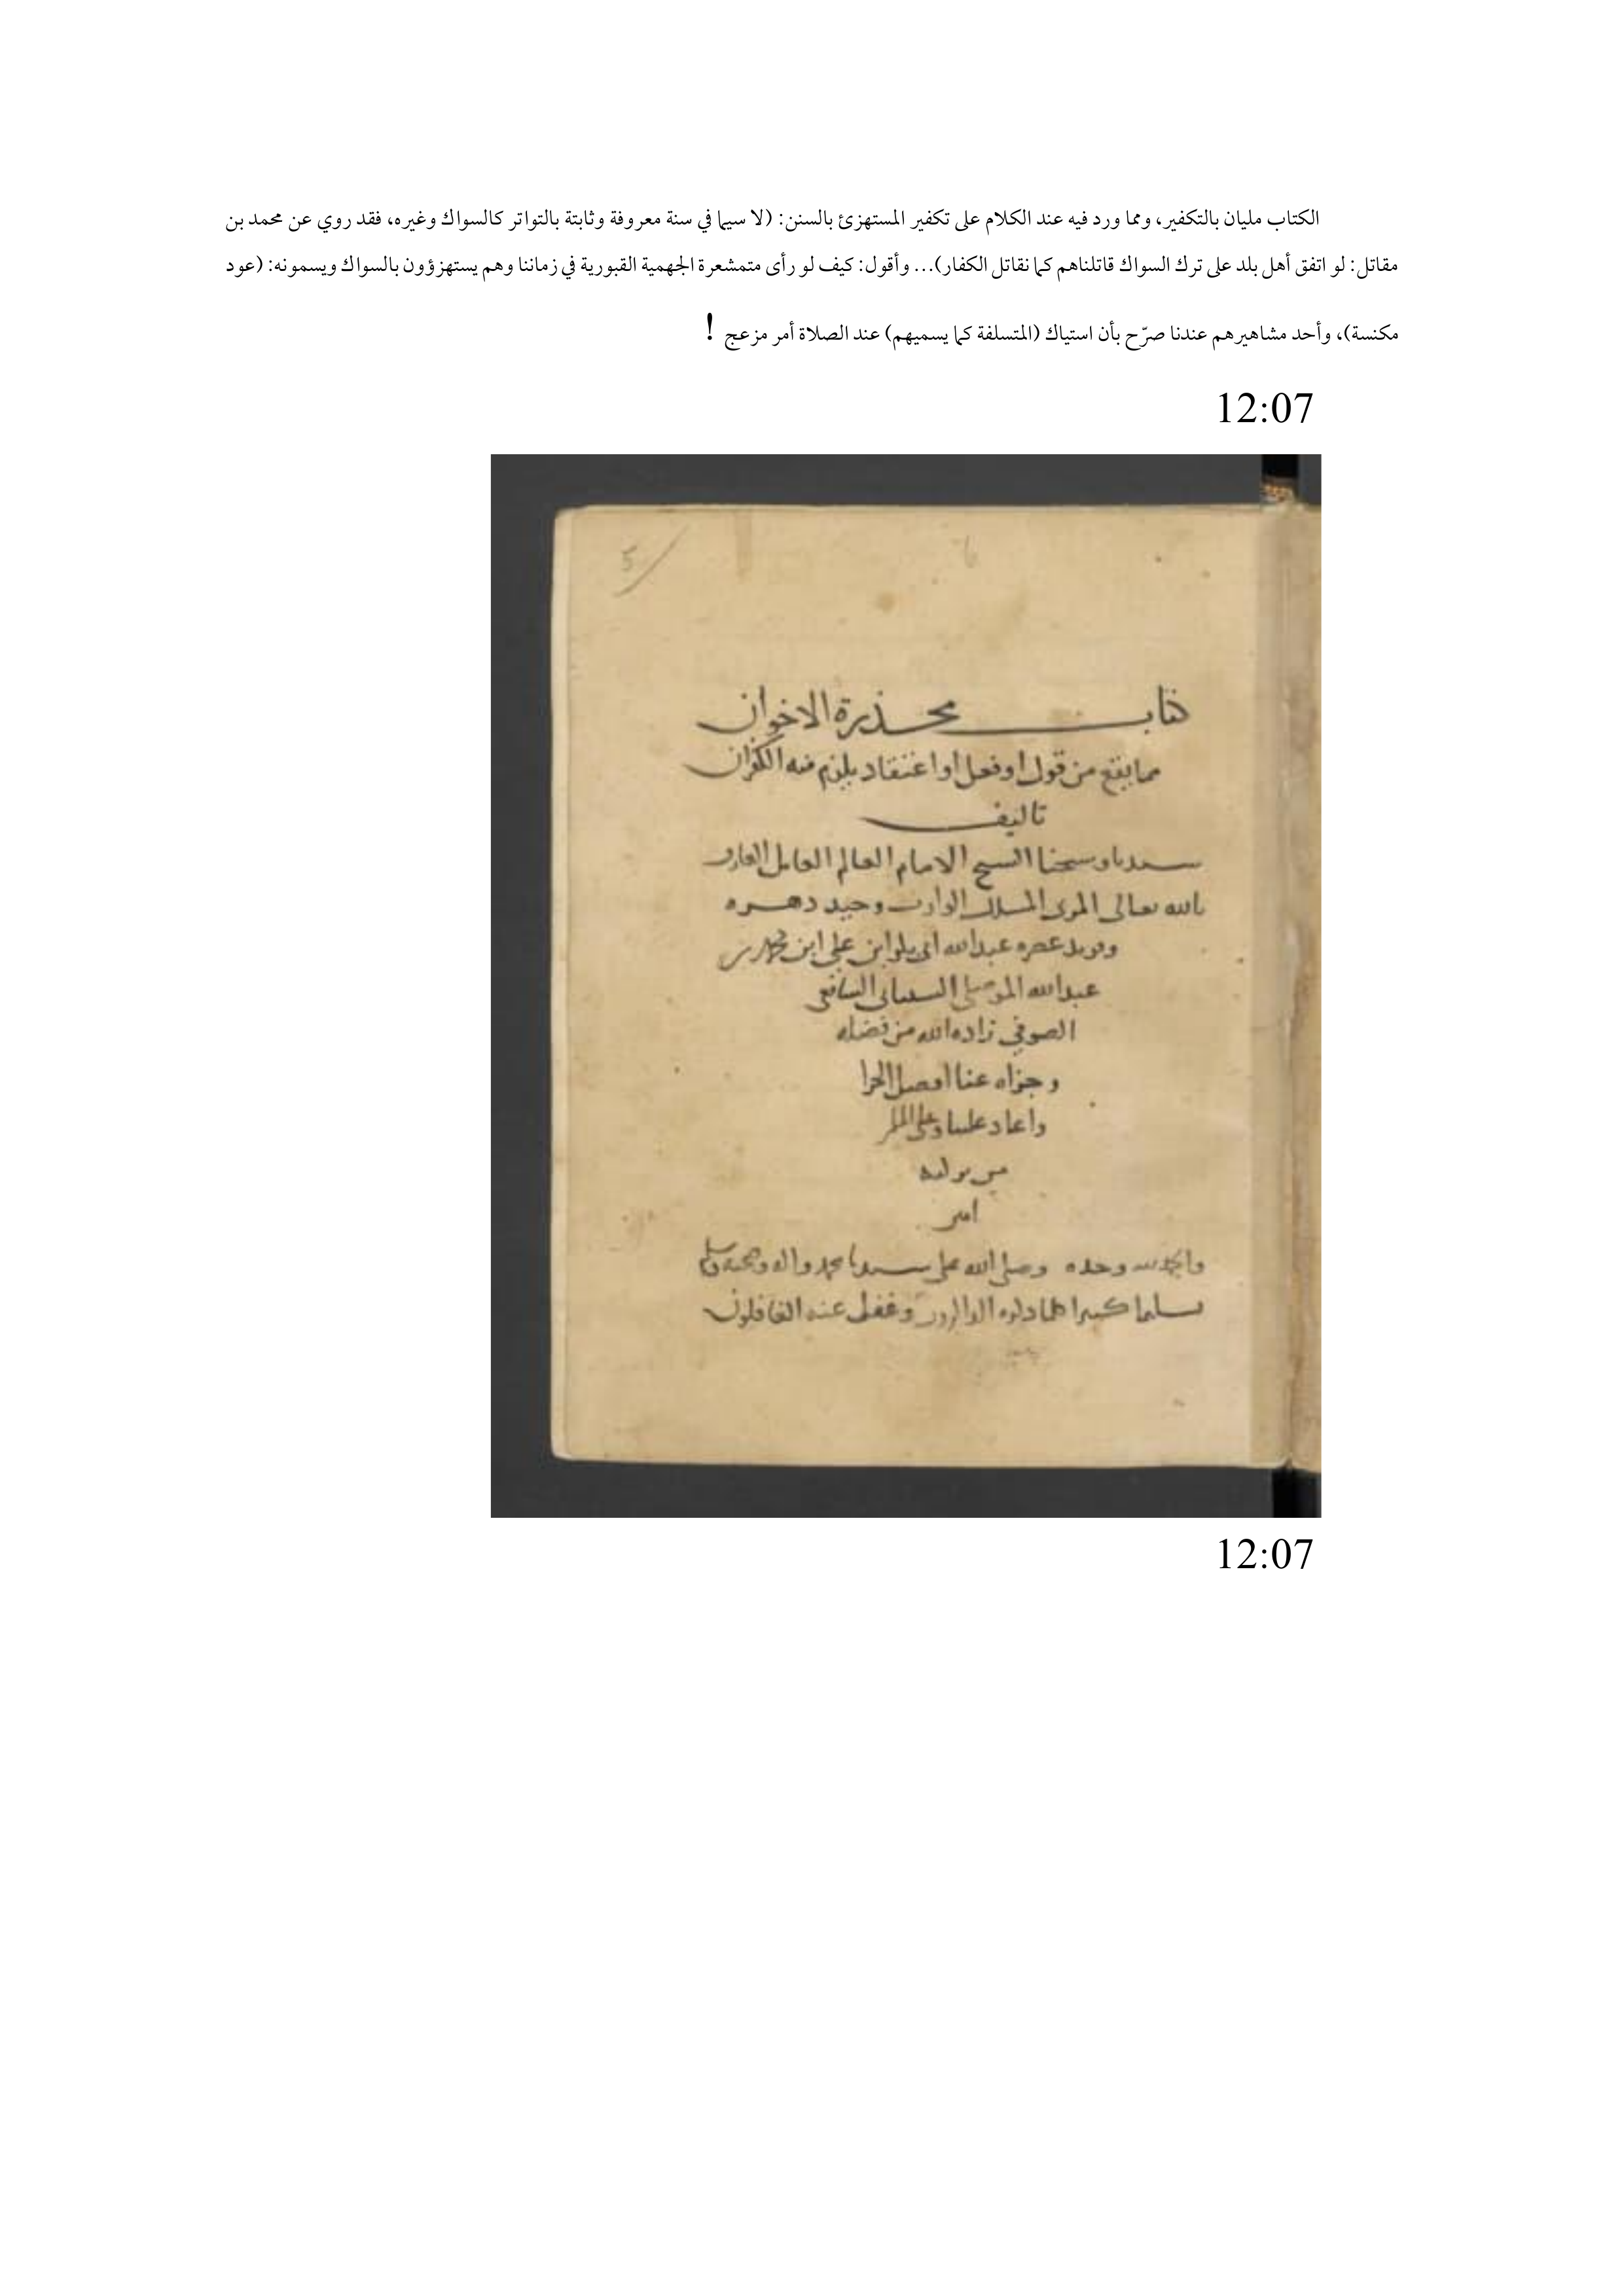 الكتاب مليان بالتكفير، ومما ورد فيه عند الكلام على تكفير المستهزئ بالسنن: (لا سيما في سنة معروفة وثابتة بالتواتر كالسواك وغيره، فقد روي عن محمد بن
مقاتل: لو اتفق أهل بلد على ترك السواك قاتلناهم كما نقاتل الكفار)... وأقول: كيف لو رأى متمشعرة الجهمية القبورية في زماننا وهم يستهزؤون بالسواك ويسمونه: (عود
مكنسة)، وأحد مشاهيرهم عندنا صرّح بأن استياك (المتسلفة كما يسميهم) عند الصلاة أمر مزعج !
12:07
5
كتاب محذرة الاخوان
مما يقع من قول او فعل او اعتقاد يلزم منه الكفران
تاليف
سيدنا وشيخنا الشيخ الامام العالم العامل العارف
بالله تعالى المربى المسلك الوارث وحيد دهره
وفريد عصره عبد الله ابن علي ابن محمد بن
عبد الله الموصلي الشيباني الشافعي
الصوفي زاده الله من فضله
وجزاه عنا افضل الجزا
واعاد علينا وعلى
من بركته
امين
والحمد لله وحده وصلى الله على سيدنا محمد واله وصحبه وسلم
تسليما كثيرا كلما ذكره الذاكرون وغفل عنه الغافلون
12:07